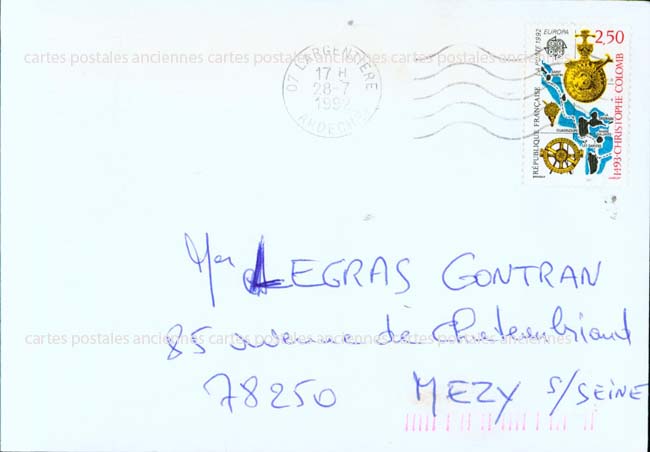 EUROPA
2,50
RÉPUBLIQUE FRANÇAISE LA POSTE 1992
1493·CHRISTOPHE COLOMB
cartes postales anciennes cartes postales anciennes cartes postales anciennes
07 L'ARGENTIERE
17 H
28-7
1992
ARDECHE
LEGRAS GONTRAN
cartes postales anciennes cartes postales anciennes cartes postales anciennes
85 avenue de Chateaubriand
78250 MEZY S/SEINE